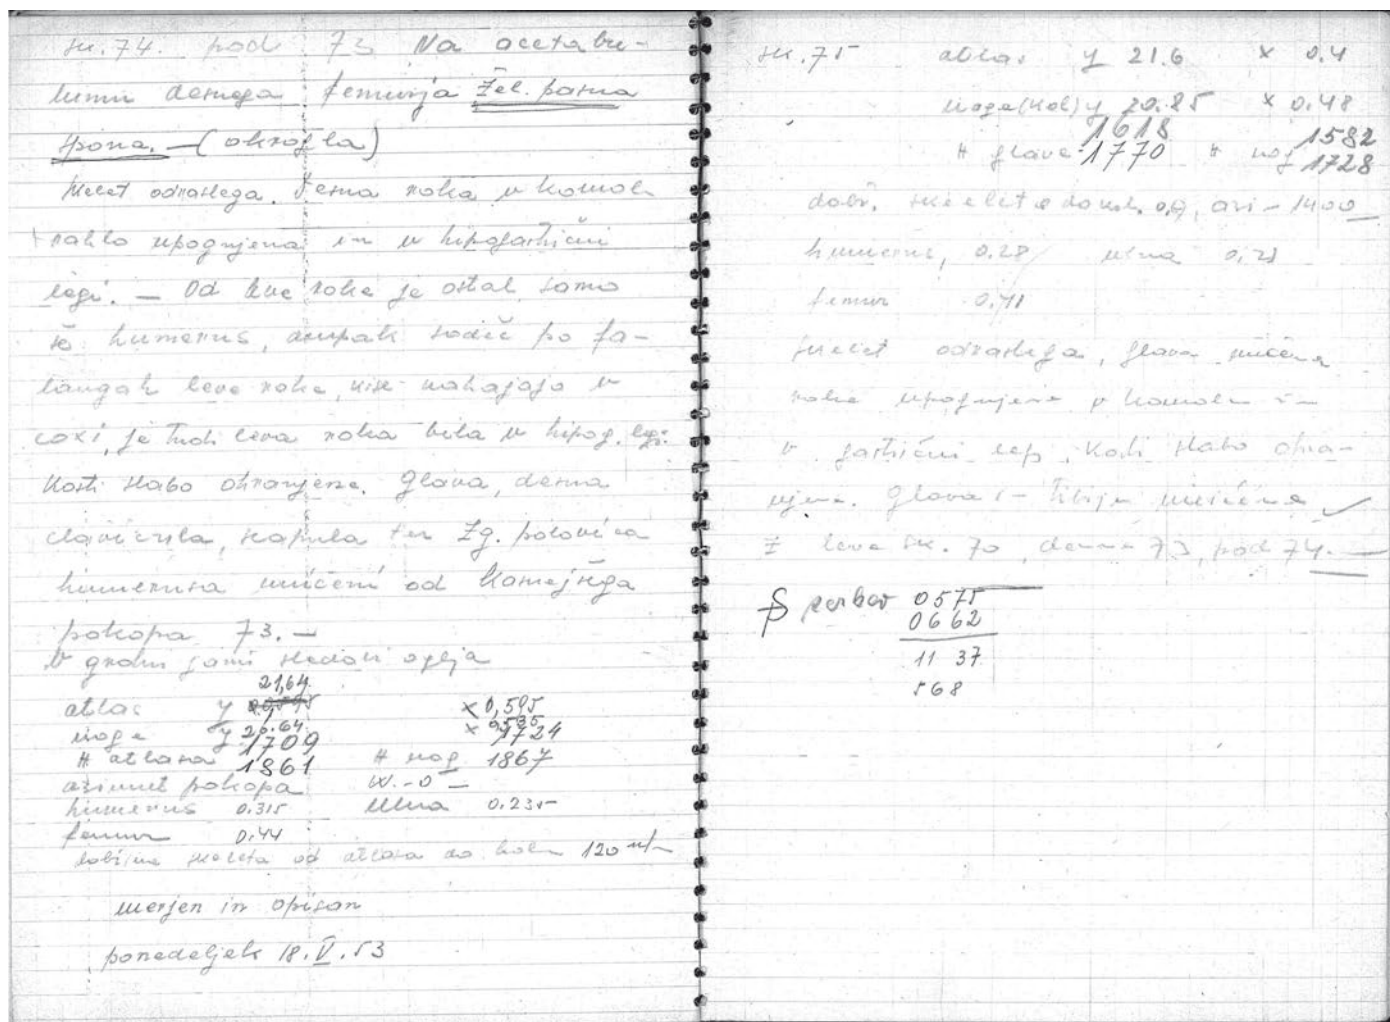 sk. 74. pod 73 Na acetabu-
lumu desnega femurja Žel. pasna
spona. – (okrogla)
Skelet odraslega. Desna roka v komolc
rahlo upognjena in v hipogastrični
legi. – Od leve roke je ostal samo
še humerus, ampak sodeč po fa-
langah leve roke, ki se nahajajo v
coxi, je tudi leva roka bila v hipog. legi.
Kosti slabo ohranjene. Glava, desna
clavicula, skapula ter zg. polovica
humerusa uničeni od kasnejšega
pokopa 73. –
V grobni jami sledovi oglja
21,64
atlas y x 0,595
noge y 20.64 x 0,535
1709 1724
# atlasa 1861 # nog 1867
azimut pokopa W.-O –
humerus 0.315 ulna 0.235
femur 0.44
dolžina skeleta od atlasa do kolen 120
merjen in opisan
ponedeljek 18. V. 53
sk. 75 atlas y 21.6 x 0.4
noge (kol) y 20.85 x 0.48
1618 1582
# glave 1770 # nog 1728
dolž. skeleta do kol. azi – 1400
humerus, 0.28 ulna
femur
skelet odraslega, glava uničena
roke upognjene v komolcu in
v gastrični legi. Kosti slabo ohra-
njene. Glava in tibije uničene
Z leve sk. 70, desne 73, pod 74. –
0575
0662
11 37
568